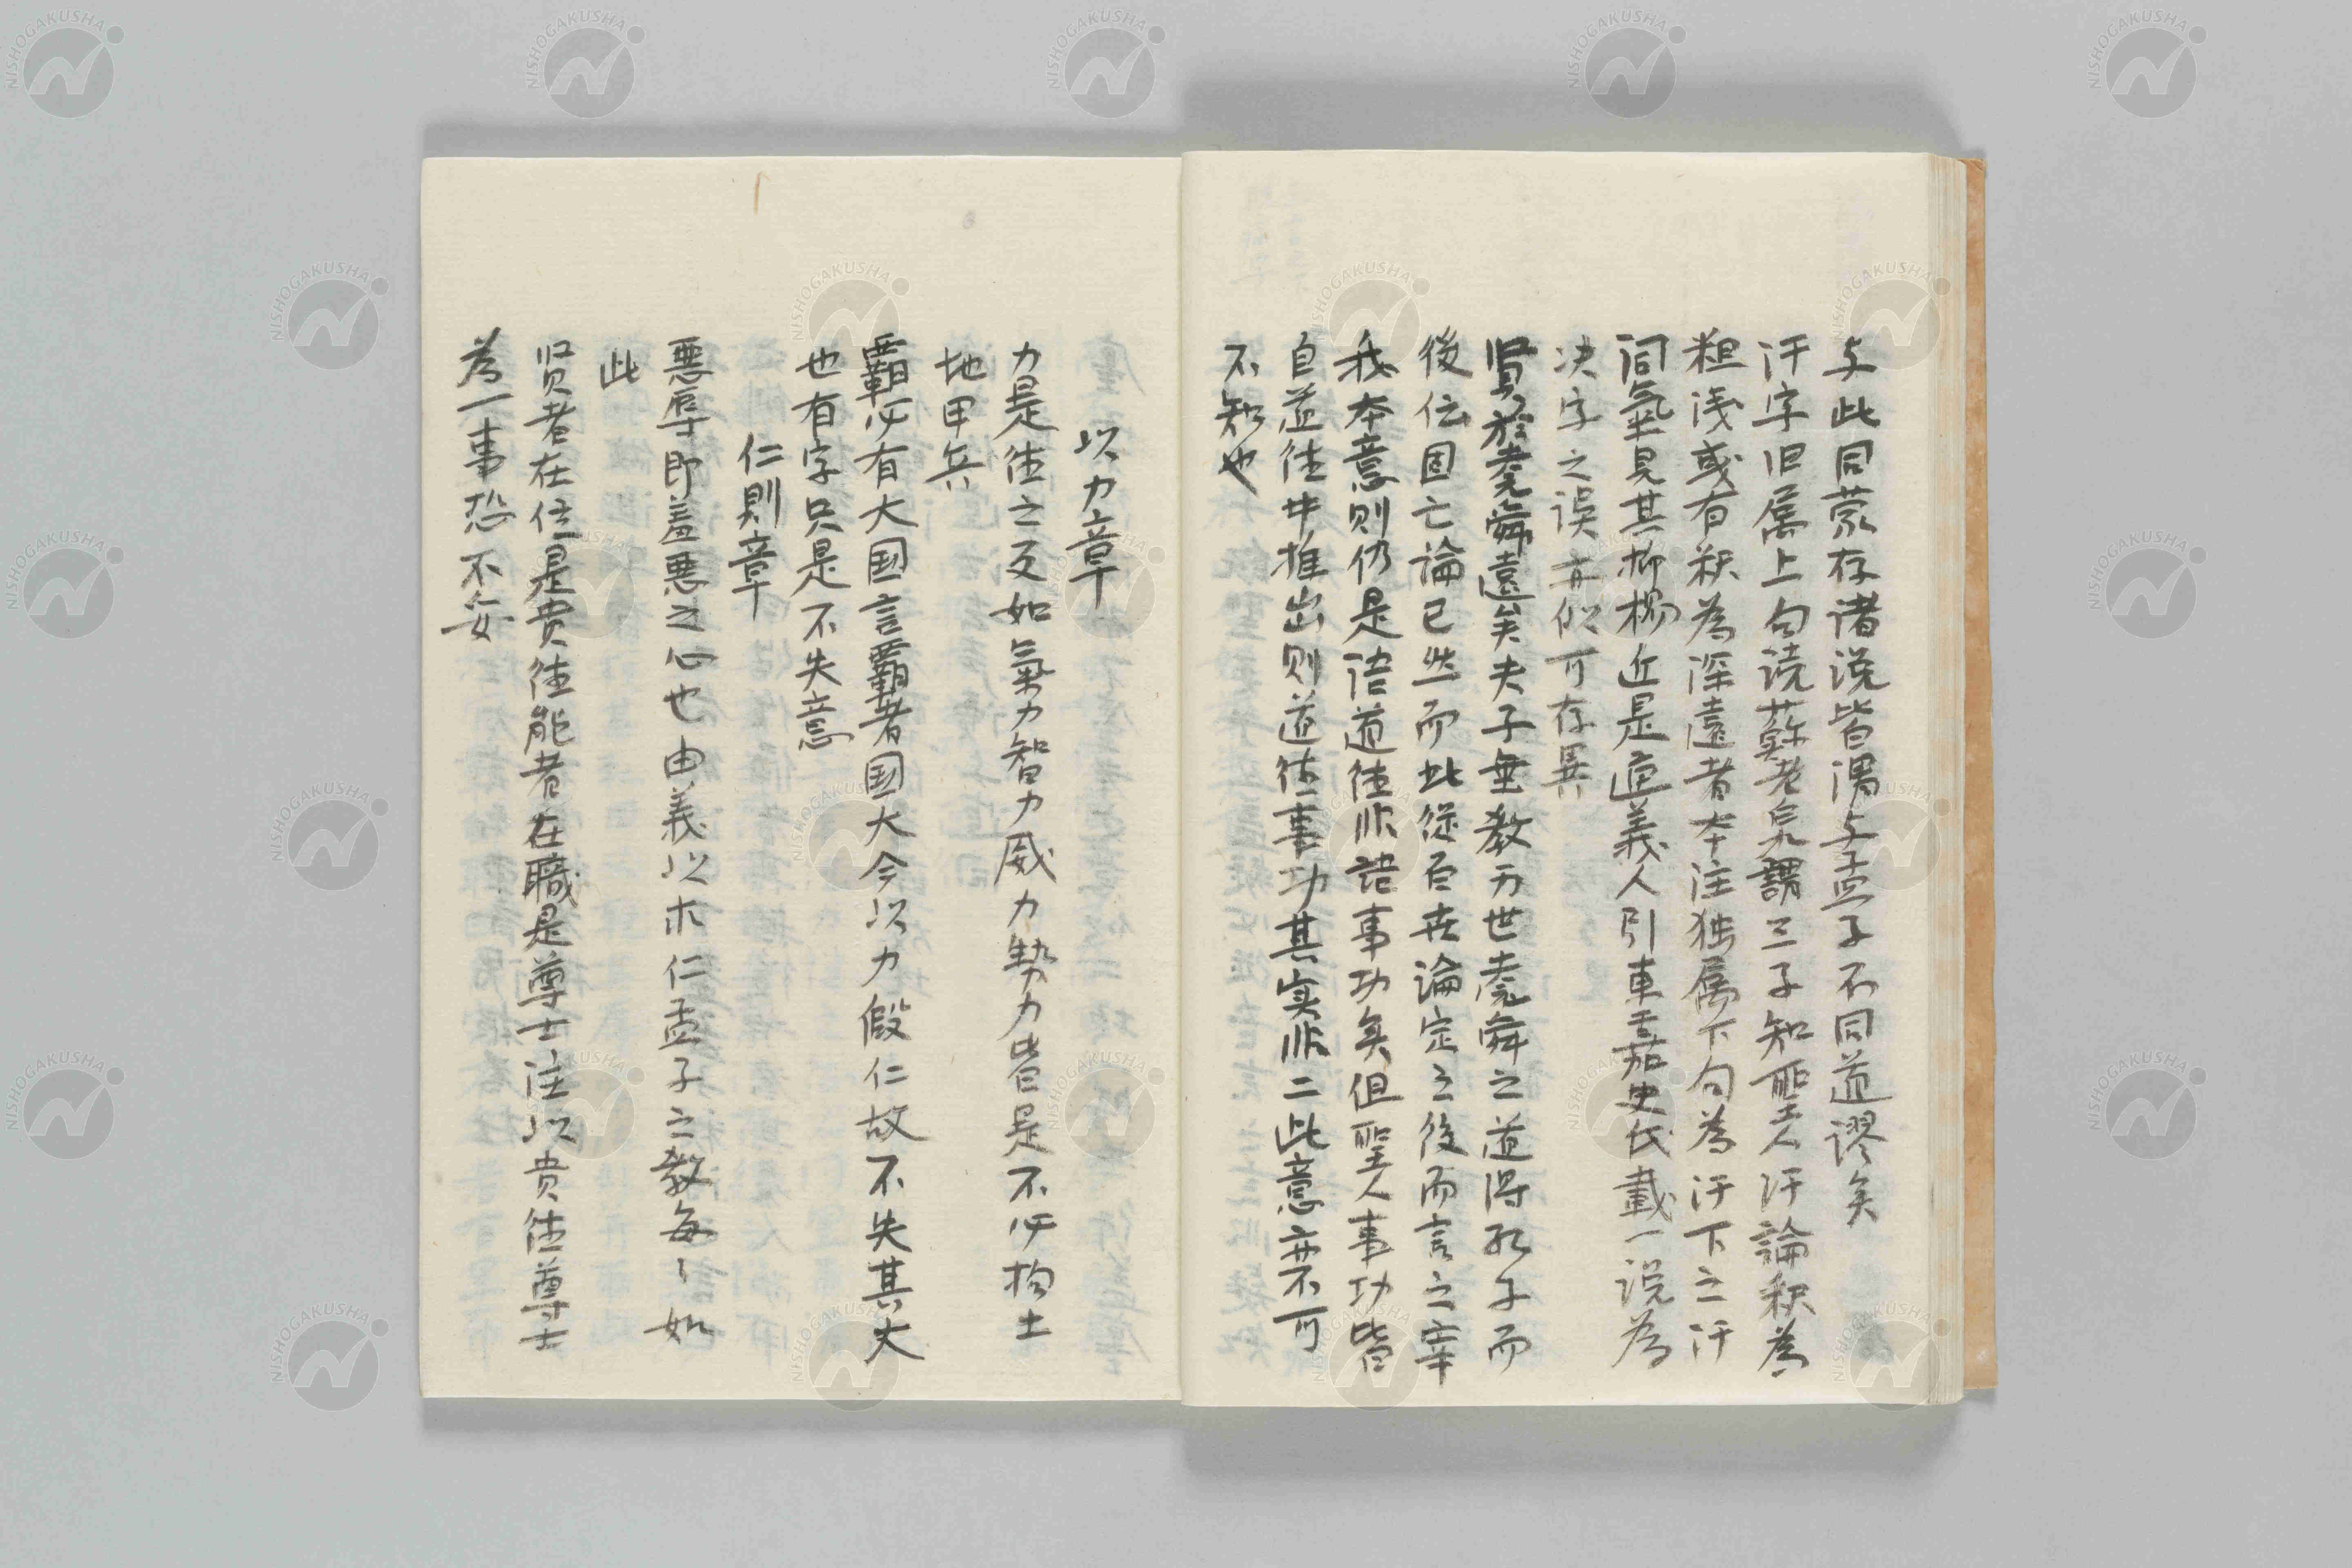 与此同蒙存诸说皆谓与孟子不同道谬矣
汙字旧属上句读蘇老泉謂三子知聖人汙論釈為
粗浅或有釈為深遠者本注独属下句為汙下之汙
同氣具其抑揚近是適義人引車玉茄史氏載一说為
决字之误亦似可存異
賢於堯舜遠矣夫子垂教万世堯舜之道得孔子而
後伝固亡論已然而此従百世論定之後而言之宰
我本意则仍是语道徳非語事功矣但聖人事功皆
自道徳中推出则道徳事功其実非二此意亦不可
不知也
以力章
力是徳之反如氣力智力威力勢力皆是不必拘土
地甲兵
覇必有大国言覇者国大今以力假仁故不失其大
也有字只是不失意
仁則章
悪辱即羞悪之心也由義以求仁孟子之教每〻如
此
贤者在位是貴徳能者在職是尊士注以貴徳尊士
為一事恐不妥
NISHOGAKUSHA